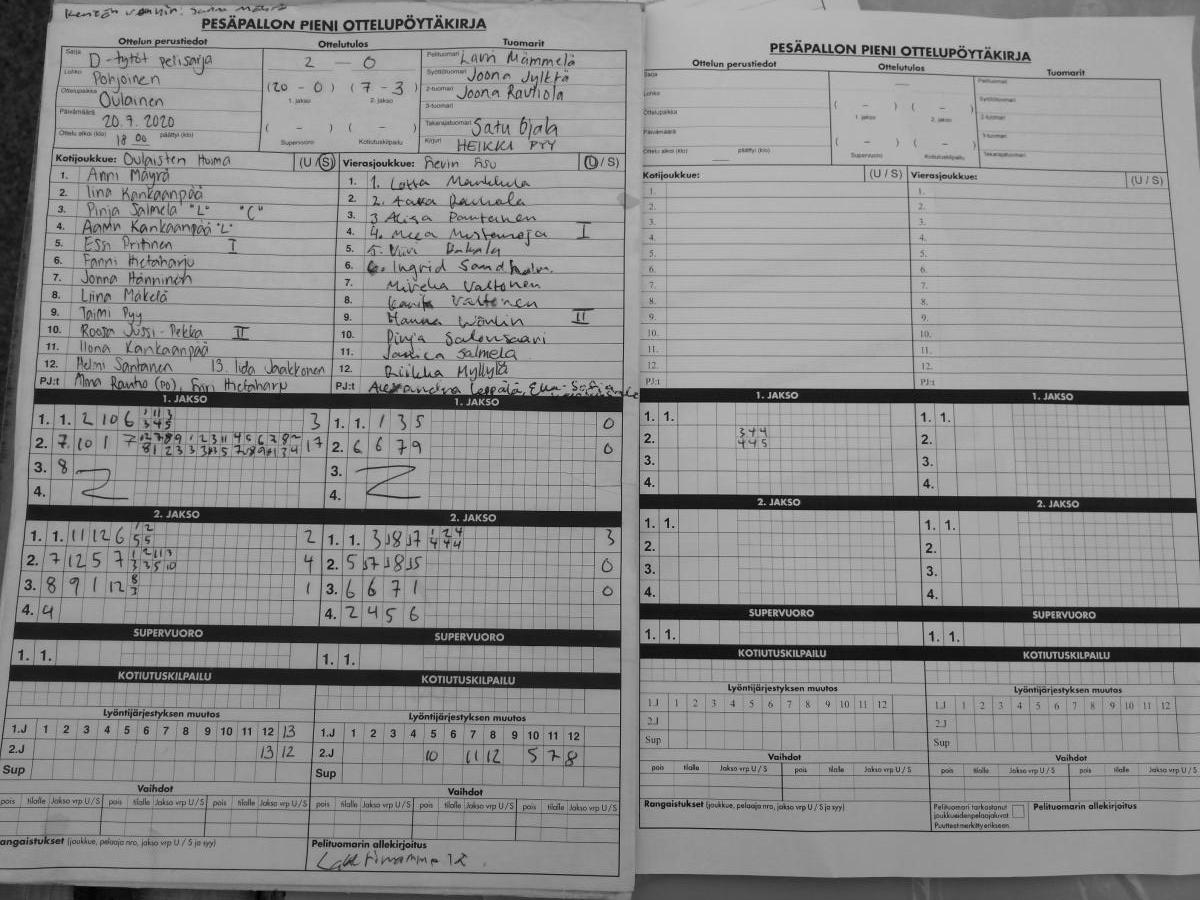 PESÄPALLON PIENI OTTELUPÖYTÄKIRJA
Ottelun perustiedot Ottelutulos Tuomarit
Sarja D-tytöt pelisarja
Lohko Pohjoinen
Ottelupaikka Oulainen
Päivämäärä 20.7.2020
Ottelu alkoi (klo) 18 00 päättyi (klo)
2 — 0
(20 - 0) (7 - 3)
1. jakso 2. jakso
( - ) ( - )
Supervuoro Kotiutuskilpailu
Pelituomari Lauri Mämmelä
Syöttötuomari Joona Jylkkä
2-tuomari Joona Rautiola
3-tuomari
Takarajatuomari Satu Ojala
Kirjuri HEIKKI PYY
Kotijoukkue: Oulaisten Huima (U / S)
1. Anni Mäyrä
2. Iina Kankaanpää
3. Pinja Salmela "L" "C"
4. Aamu Kankaanpää "L"
5. Essi Pritinen I
6. Fanni Hietaharju
7. Jonna Hänninen
8. Liina Mäkelä
9. Taimi Pyy
10. Roosa Jussi-Pekka II
11. Ilona Kankaanpää
12. Helmi Santanen 13. Iida Jaakkonen
PJ:t Alma Rautio (PO), Sari Hietaharju
Vierasjoukkue: (U / S)
1. 1. Lotta Markkula
2. 2.
3. 3 Alisa Pantanen
4. 4. I
5. 5. Viivi
6. 6. Ingrid Sandholm.
7. Valtonen
8. Valtonen
9. Hanna II
10. Pinja Salonsaari
11. Janica Salmela
12. Riikka Myllylä
PJ:t Alexandra Leppälä, Ella-Sofia
1. JAKSO 1. JAKSO
1. 1. 2 10 6 3
1. 1. 1 3 5 0
2. 7 10 1 7 17
2. 6 6 7 9 0
3. 8
3.
4.
4.
2. JAKSO 2. JAKSO
1. 1. 11 12 6 2
1. 1. 3 18 17 3
2. 7 12 5 7 4
2. 5 17 18 15 0
3. 8 9 1 12 1
3. 6 6 7 1 0
4. 4
4. 2 4 5 6
SUPERVUORO SUPERVUORO
1. 1. 1. 1.
KOTIUTUSKILPAILU KOTIUTUSKILPAILU
Lyöntijärjestyksen muutos Lyöntijärjestyksen muutos
1.J 1 2 3 4 5 6 7 8 9 10 11 12 13
1.J 1 2 3 4 5 6 7 8 9 10 11 12
2.J 13 12
2.J 10 11 12 5 7 8
Sup Sup
Vaihdot Vaihdot
pois tilalle Jakso vrp U / S pois tilalle Jakso vrp U / S pois tilalle Jakso vrp U / S pois tilalle Jakso vrp U / S
angaistukset (joukkue, pelaaja nro, jakso vrp U / S ja syy)
Pelituomarin allekirjoitus
PESÄPALLON PIENI OTTELUPÖYTÄKIRJA
Ottelun perustiedot Ottelutulos Tuomarit
Sarja
Lohko
Ottelupaikka
Päivämäärä
Ottelu alkoi (klo) päättyi (klo)
( - ) ( - )
1. jakso 2. jakso
( - ) ( - )
Supervuoro Kotiutuskilpailu
Pelituomari
Syöttötuomari
2-tuomari
3-tuomari
Takarajatuomari
Kirjuri
Kotijoukkue: (U / S) Vierasjoukkue: (U / S)
1. 1.
2. 2.
3. 3.
4. 4.
5. 5.
6. 6.
7. 7.
8. 8.
9. 9.
10. 10.
11. 11.
12. 12.
PJ:t PJ:t
1. JAKSO 1. JAKSO
1. 1. 1. 1.
2. 2.
3. 3.
4. 4.
2. JAKSO 2. JAKSO
1. 1. 1. 1.
2. 2.
3. 3.
4. 4.
SUPERVUORO SUPERVUORO
1. 1. 1. 1.
KOTIUTUSKILPAILU KOTIUTUSKILPAILU
Lyöntijärjestyksen muutos Lyöntijärjestyksen muutos
1.J 1 2 3 4 5 6 7 8 9 10 11 12 1.J 1 2 3 4 5 6 7 8 9 10 11 12
2.J 2.J
Sup Sup
Vaihdot Vaihdot
pois tilalle Jakso vrp U / S pois tilalle Jakso vrp U / S pois tilalle Jakso vrp U / S pois tilalle Jakso vrp U / S
Rangaistukset (joukkue, pelaaja nro, jakso vrp U / S ja syy)
Pelituomari tarkastanut joukkueiden pelaajaluvat
Puutteet merkitty erikseen
Pelituomarin allekirjoitus